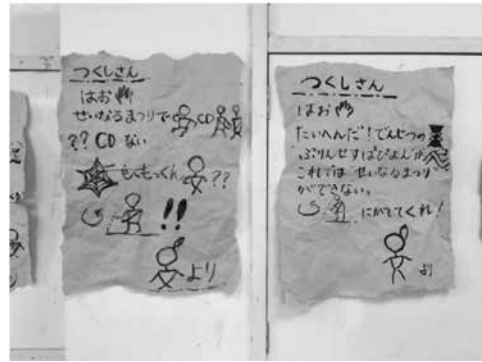 つくしさん
はお
せいなるまつりで CD
?? CD ない
もくもっくん ??
!!
より
つくしさん
はお
たいへんだ!でんせつの
ぷりんせすぱぴよんが
これでは せいなるまつり
ができない。
にがてくれ!
より